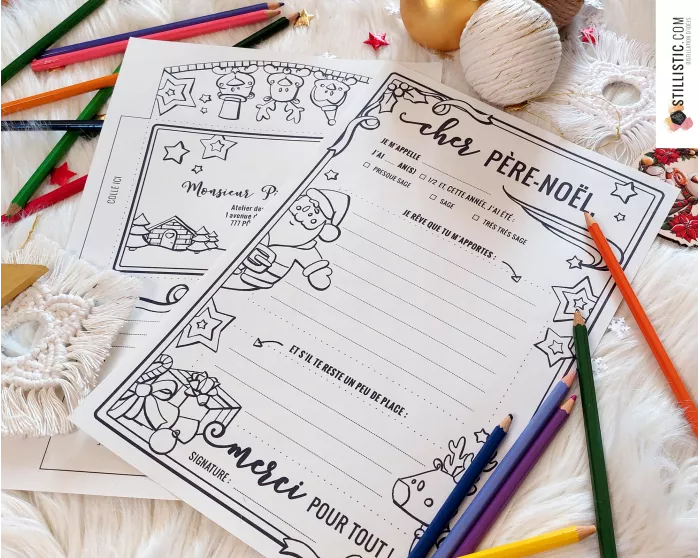 STILLISTIC.COM
DISTILLATION D'IDÉES
COLLE ICI
Monsieur
Atelier
1 avenue
cher PÈRE-NOËL,
JE M'APPELLE
J'AI ..... AN(S) ☐ 1/2 ET CETTE ANNÉE, J'AI ÉTÉ :
☐ PRESQUE SAGE ☐ SAGE ☐ TRÈS TRÈS SAGE
JE RÊVE QUE TU M'APPORTES :
ET S'IL TE RESTE UN PEU DE PLACE :
merci POUR TOUT !
SIGNATURE :